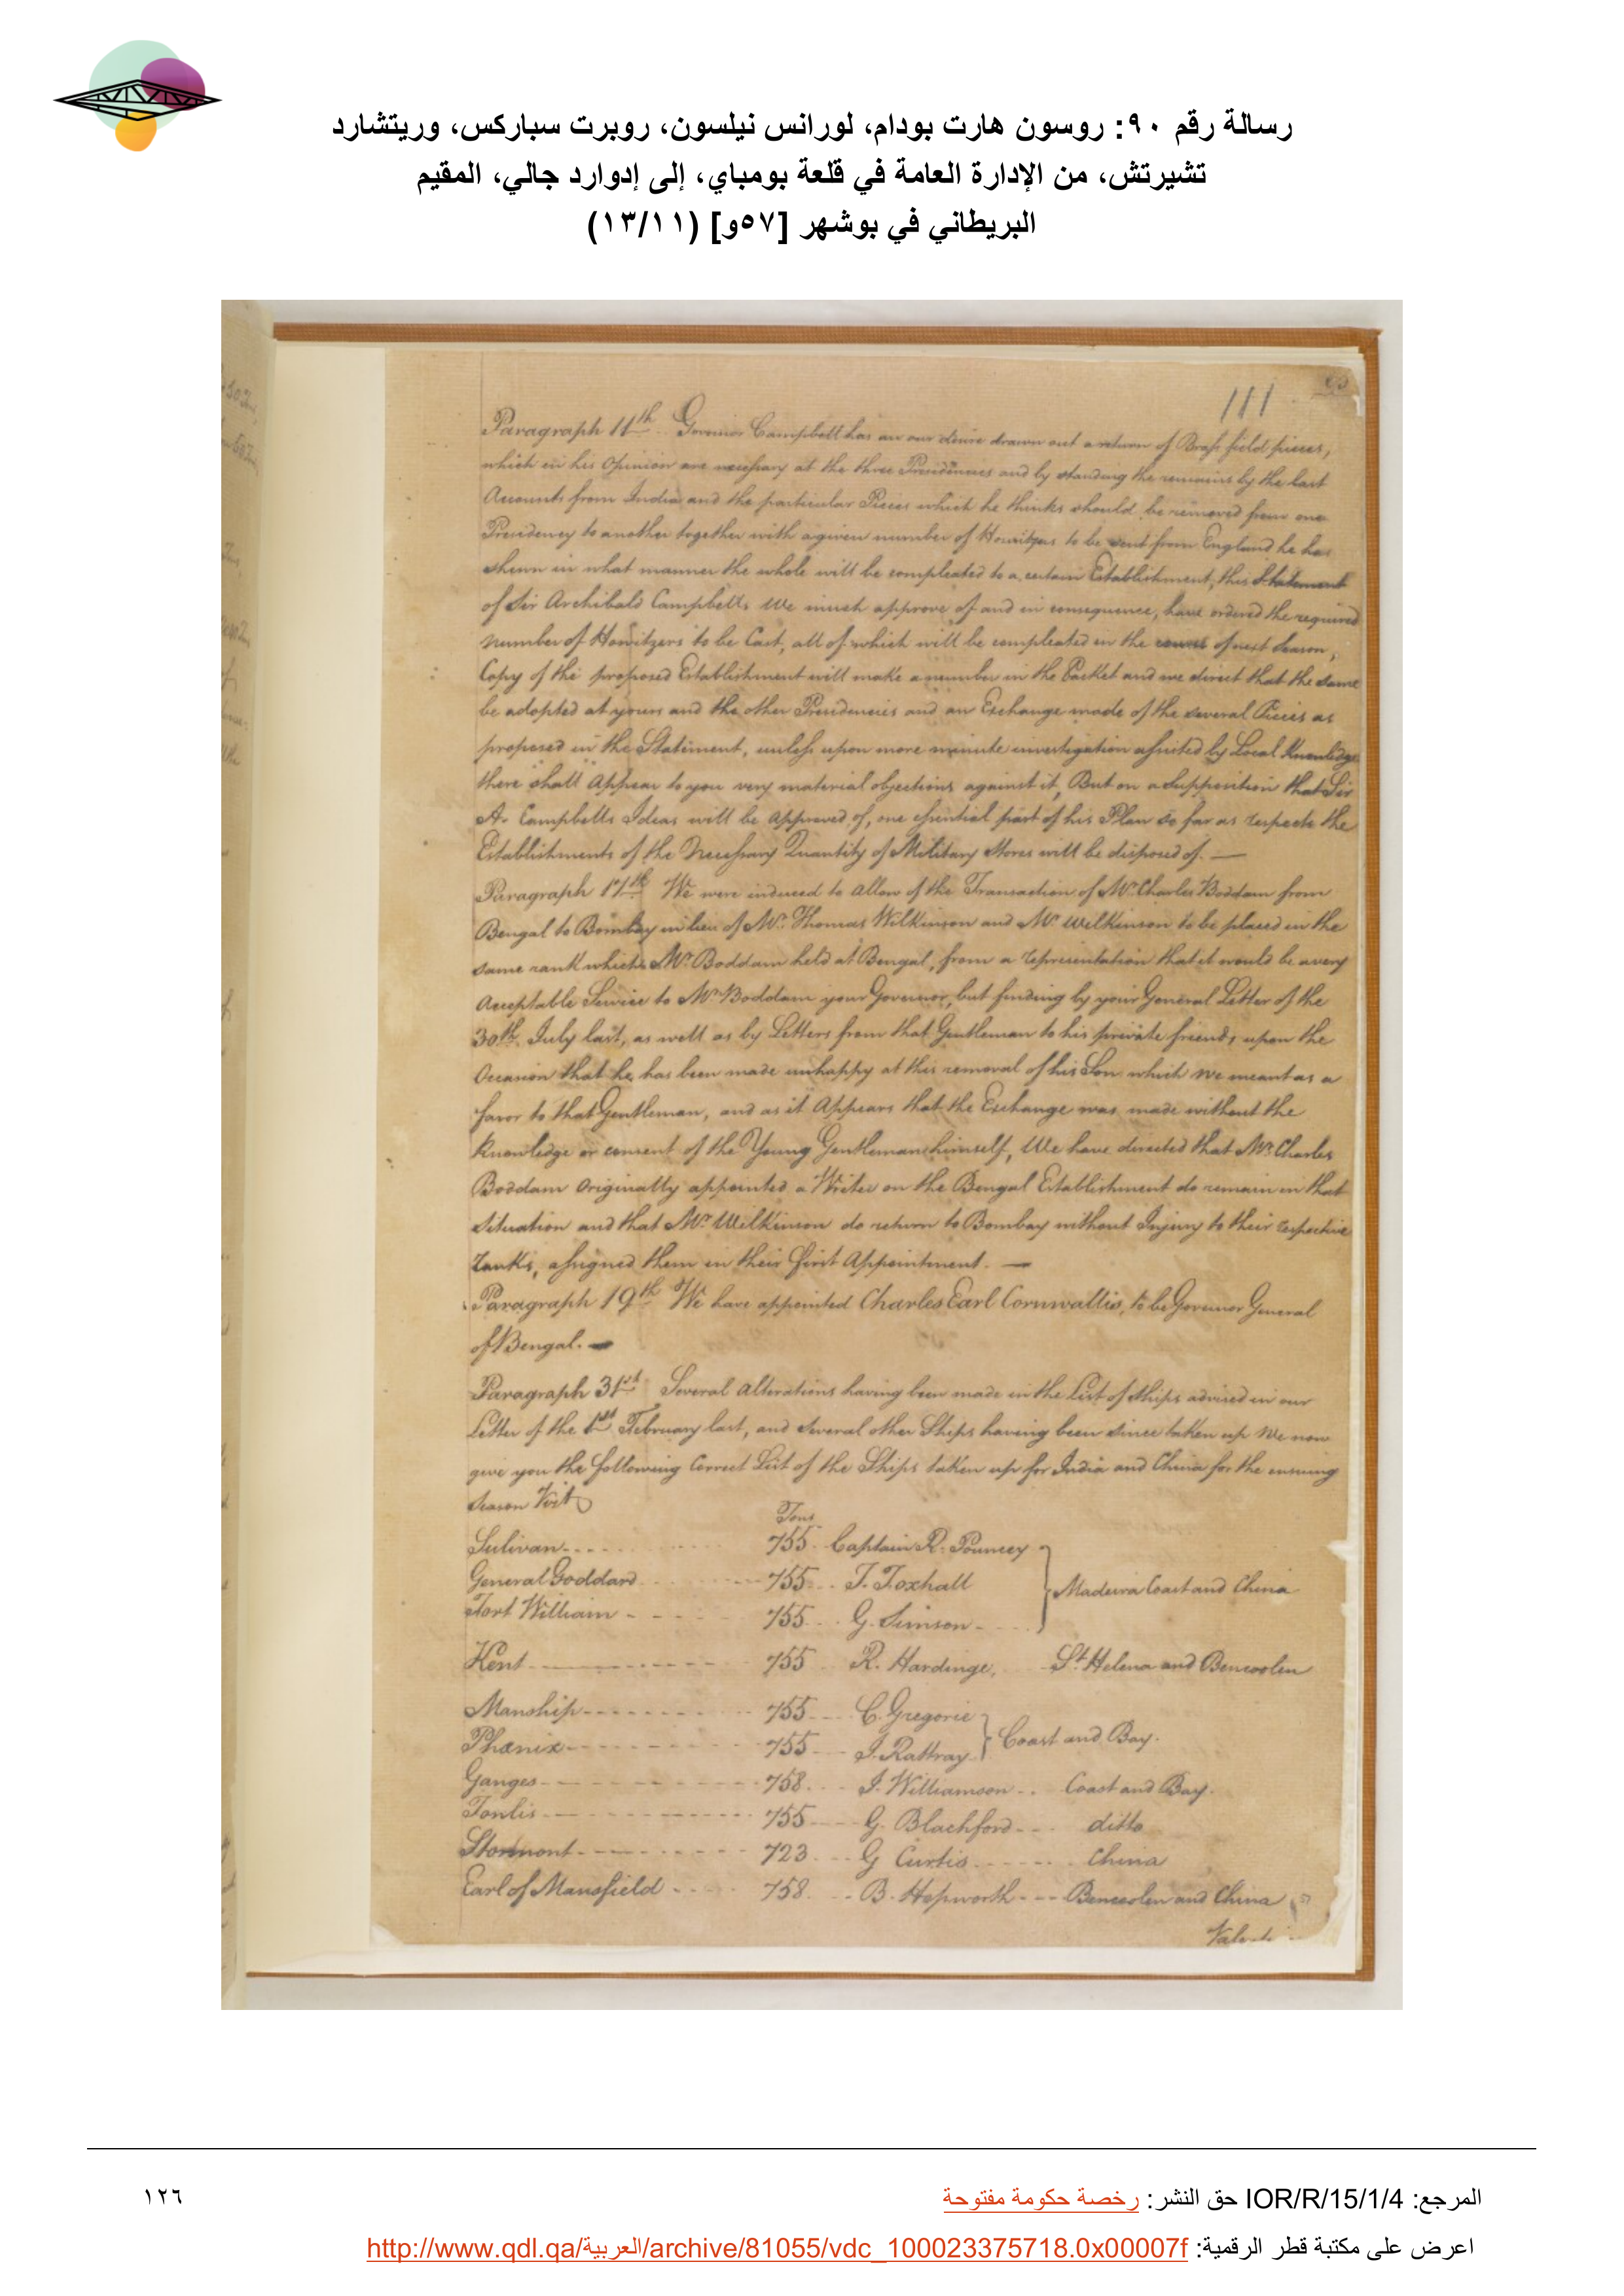 رسالة رقم ٩٠: روسون هارت بودام، لورانس نيلسون، روبرت سباركس، وريتشارد
تشيرتش، من الإدارة العامة في قلعة بومباي، إلى إدوارد جالي، المقيم
البريطاني في بوشهر [٥٧و] (١٣/١١)
111
Paragraph 11th Governor Campbell has an our desire drawn out a return of Brass field pieces,
which in his Opinion are necessary at the three Presidencies and by standing the remains by the last
Accounts from India and the particular Pieces which he thinks should be removed from one
Presidency to another together with a given number of Howitzers to be sent from England he has
shewn in what manner the whole will be compleated to a certain Establishment, this Statement
of Sir Archibald Campbells We much approve of and in consequence, have ordered the required
number of Howitzers to be Cast, all of which will be compleated in the course of next Season,
Copy of the proposed Establishment will make a number in the Packet and we direct that the same
be adopted at yours and the other Presidencies and an Exchange made of the several Pieces as
proposed in the Statement, unless upon more minute investigation assisted by Local Knowledge
there shall Appear to you very material objections against it, But on a Supposition that Sir
A. Campbells Ideas will be approved of, one essential part of his Plan so far as respects the
Establishments of the Necessary Quantity of Military Stores will be disposed of. —
Paragraph 17th We were induced to allow of the Transaction of Mr. Charles Boddam from
Bengal to Bombay in lieu of Mr. Thomas Wilkinson and Mr Wilkinson to be placed in the
same rank which Mr. Boddam held at Bengal, from a representation that it would be a very
Acceptable Service to Mr Boddam your Governor, but finding by your General Letter of the
30th. July last, as well as by Letters from that Gentleman to his private friends, upon the
Occasion that he has been made unhappy at this removal of his Son which we meant as a
favor to that Gentleman, and as it Appears that the Exchange was made without the
knowledge or consent of the Young Gentleman himself, We have directed that Mr. Charles
Boddam Originally appointed a Writer on the Bengal Establishment do remain in that
situation and that Mr. Wilkinson do return to Bombay without Injury to their respective
ranks, assigned them in their first Appointment. —
Paragraph 19th We have appointed Charles Earl Cornwallis, to be Governor General
of Bengal. —
Paragraph 31st Several Alterations having been made in the List of Ships advised in our
Letter of the February last, and several other Ships having been since taken up We now
give you the following Correct List of the Ships taken up for India and China for the ensuing
Season Vizt
Tons
Sulivan 755 Captain R. Pouncey
General Goddard 755 T. Foxhall } Madeira Coast and China
Fort William 755 G. Simson
Kent 755 R. Hardinge, St. Helena and Bencoolen
Manship 755 C. Gregorie
Phœnix 755 J. Rattray } Coast and Bay.
Ganges 758 J. Williamson Coast and Bay.
Fonlis 755 G. Blachford ditto
Stormont 723 G Curtis China
Earl of Mansfield 758 B. Hepworth Bencoolen and China
المرجع: IOR/R/15/1/4 حق النشر: رخصة حكومة مفتوحة
١٢٦
اعرض على مكتبة قطر الرقمية: http://www.qdl.qa/العربية/archive/81055/vdc_100023375718.0x00007f